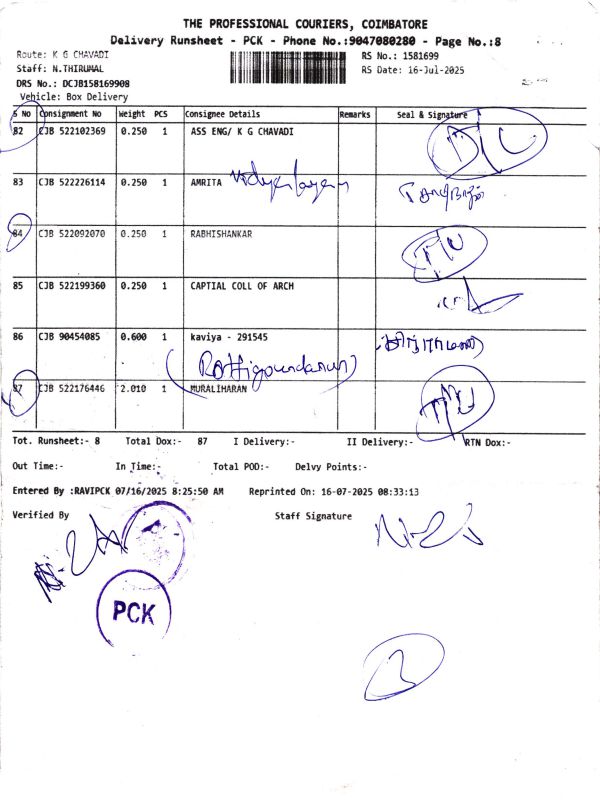 THE PROFESSIONAL COURIERS, COIMBATORE
Delivery Runsheet - PCK - Phone No.:9047080280 - Page No.:8
Route: K G CHAVADI RS No.: 1581699
Staff: N.THIRUMAL RS Date: 16-Jul-2025
DRS No.: DCJB158169908
Vehicle: Box Delivery
S No Consignment No Weight PCS Consignee Details Remarks Seal & Signature
82 CJB 522102369 0.250 1 ASS ENG/ K G CHAVADI
83 CJB 522226114 0.250 1 AMRITA
84 CJB 522092070 0.250 1 RABHISHANKAR
85 CJB 522199360 0.250 1 CAPTIAL COLL OF ARCH
86 CJB 90454085 0.600 1 kaviya - 291545
87 CJB 522176446 2.010 1 MURALIHARAN
Tot. Runsheet:- 8 Total Dox:- 87 I Delivery:- II Delivery:- RTN Dox:-
Out Time:- In Time:- Total POD:- Delvy Points:-
Entered By :RAVIPCK 07/16/2025 8:25:50 AM Reprinted On: 16-07-2025 08:33:13
Verified By Staff Signature
PCK